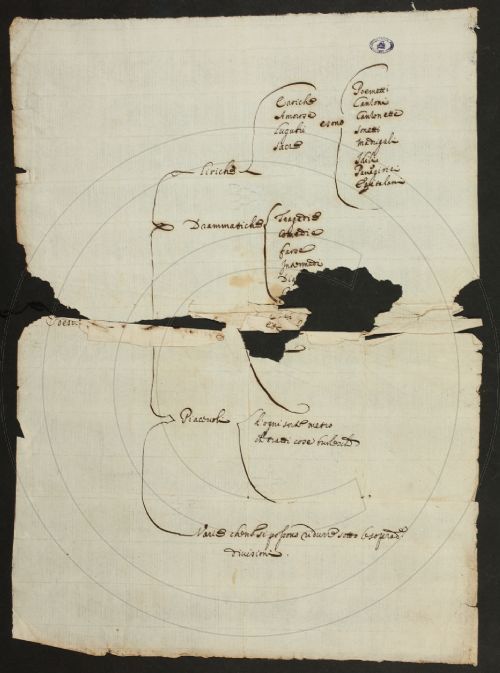 Eroiche
Amorose
Lugubri
Sacre
e sono
Poemetti
Canzoni
Canzonette
Sonetti
Madrigali
Idilii
Panegirici
Epitalami
Liriche
Drammatiche
Tragedie
Comedie
Farse
Intermedi
Poesi
Piacevoli
d'ogni sorte metro
che tratti cose burlesche
Varie che non si possono ridurre sotto le sopradte
divisioni.